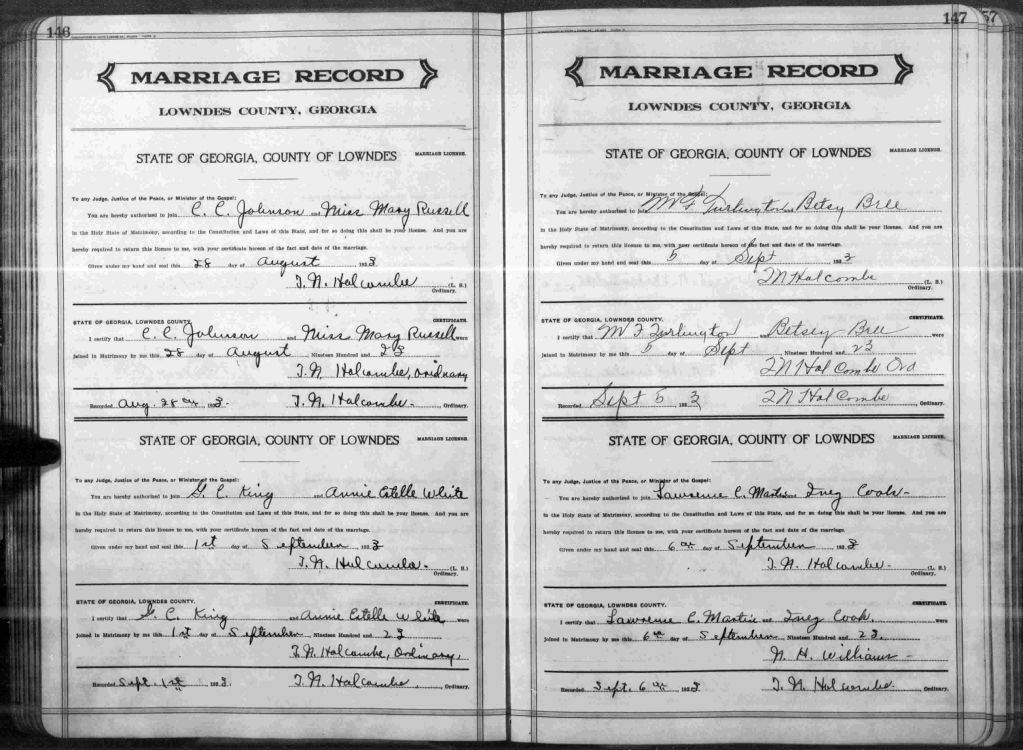 146
MARRIAGE RECORD
LOWNDES COUNTY, GEORGIA
STATE OF GEORGIA, COUNTY OF LOWNDES MARRIAGE LICENSE.
To any Judge, Justice of the Peace, or Minister of the Gospel:
You are hereby authorized to join C. C. Johnson and Miss Mary Russell
in the Holy State of Matrimony, according to the Constitution and Laws of this State, and for so doing this shall be your license. And you are
hereby required to return this license to me, with your certificate hereon of the fact and date of the marriage.
Given under my hand and seal this 28 day of August 1923
T. N. Holcombe (L. S.)
Ordinary.
STATE OF GEORGIA, LOWNDES COUNTY. CERTIFICATE.
I certify that C. C. Johnson and Miss Mary Russell were
joined in Matrimony by me this 28 day of August Nineteen Hundred and 23
T. N. Holcombe, Ordinary
Recorded Aug. 28th 1923. T. N. Holcombe Ordinary.
STATE OF GEORGIA, COUNTY OF LOWNDES MARRIAGE LICENSE.
To any Judge, Justice of the Peace, or Minister of the Gospel:
You are hereby authorized to join G. C. King and Annie Estelle White
in the Holy State of Matrimony, according to the Constitution and Laws of this State, and for so doing this shall be your license. And you are
hereby required to return this license to me, with your certificate hereon of the fact and date of the marriage.
Given under my hand and seal this 1st day of September 1923
T. N. Holcombe (L. S.)
Ordinary.
STATE OF GEORGIA, LOWNDES COUNTY. CERTIFICATE.
I certify that G. C. King and Annie Estelle White were
joined in Matrimony by me this 1st day of September Nineteen Hundred and 23
T. N. Holcombe, Ordinary,
Recorded Sept. 1st 1923. T. N. Holcombe, Ordinary.
147
57
MARRIAGE RECORD
LOWNDES COUNTY, GEORGIA
STATE OF GEORGIA, COUNTY OF LOWNDES MARRIAGE LICENSE.
To any Judge, Justice of the Peace, or Minister of the Gospel:
You are hereby authorized to join W F Turlington and Betsy Bree
in the Holy State of Matrimony, according to the Constitution and Laws of this State, and for so doing this shall be your license. And you are
hereby required to return this license to me, with your certificate hereon of the fact and date of the marriage.
Given under my hand and seal this 5 day of Sept 1923
T N Holcombe (L. S.)
Ordinary.
STATE OF GEORGIA, LOWNDES COUNTY. CERTIFICATE.
I certify that W F Turlington and Betsey Bree were
joined in Matrimony by me this 5 day of Sept Nineteen Hundred and 23
T N Holcombe Ord
Recorded Sept 5 1923 T N Holcombe Ordinary.
STATE OF GEORGIA, COUNTY OF LOWNDES MARRIAGE LICENSE.
To any Judge, Justice of the Peace, or Minister of the Gospel:
You are hereby authorized to join Lawrence C. Martin and Inez Cook
in the Holy State of Matrimony, according to the Constitution and Laws of this State, and for so doing this shall be your license. And you are
hereby required to return this license to me, with your certificate hereon of the fact and date of the marriage.
Given under my hand and seal this 6th day of September 1923
T. N. Holcombe (L. S.)
Ordinary.
STATE OF GEORGIA, LOWNDES COUNTY. CERTIFICATE.
I certify that Lawrence C. Martin and Inez Cook. were
joined in Matrimony by me this 6th day of September Nineteen Hundred and 23.
N. H. Williams
Recorded Sept. 6th 1923 T. N. Holcombe. Ordinary.